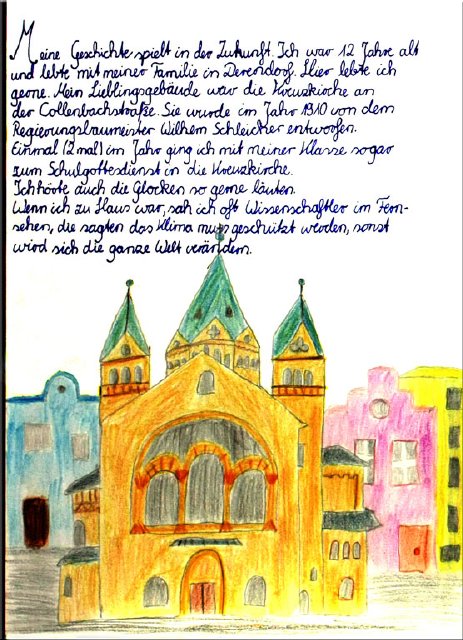 Meine Geschichte spielt in der Zukunft. Ich war 12 Jahre alt
und lebte mit meiner Familie in Derendorf. Hier lebte ich
gerne. Mein Lieblingsgebäude war die Kreuzkirche an
der Collenbachstraße. Sie wurde im Jahr 1910 von dem
Regierungsbaumeister Wilhem Schleicher entworfen.
Einmal (2 mal) im Jahr ging ich mit meiner Klasse sogar
zum Schulgottesdienst in die Kreuzkirche.
Ich hörte auch die Glocken so gerne läuten.
Wenn ich zu Haus war, sah ich oft Wissenschaftler im Fern-
sehen, die sagten das Klima muss geschützt werden, sonst
wird sich die ganze Welt verändern.